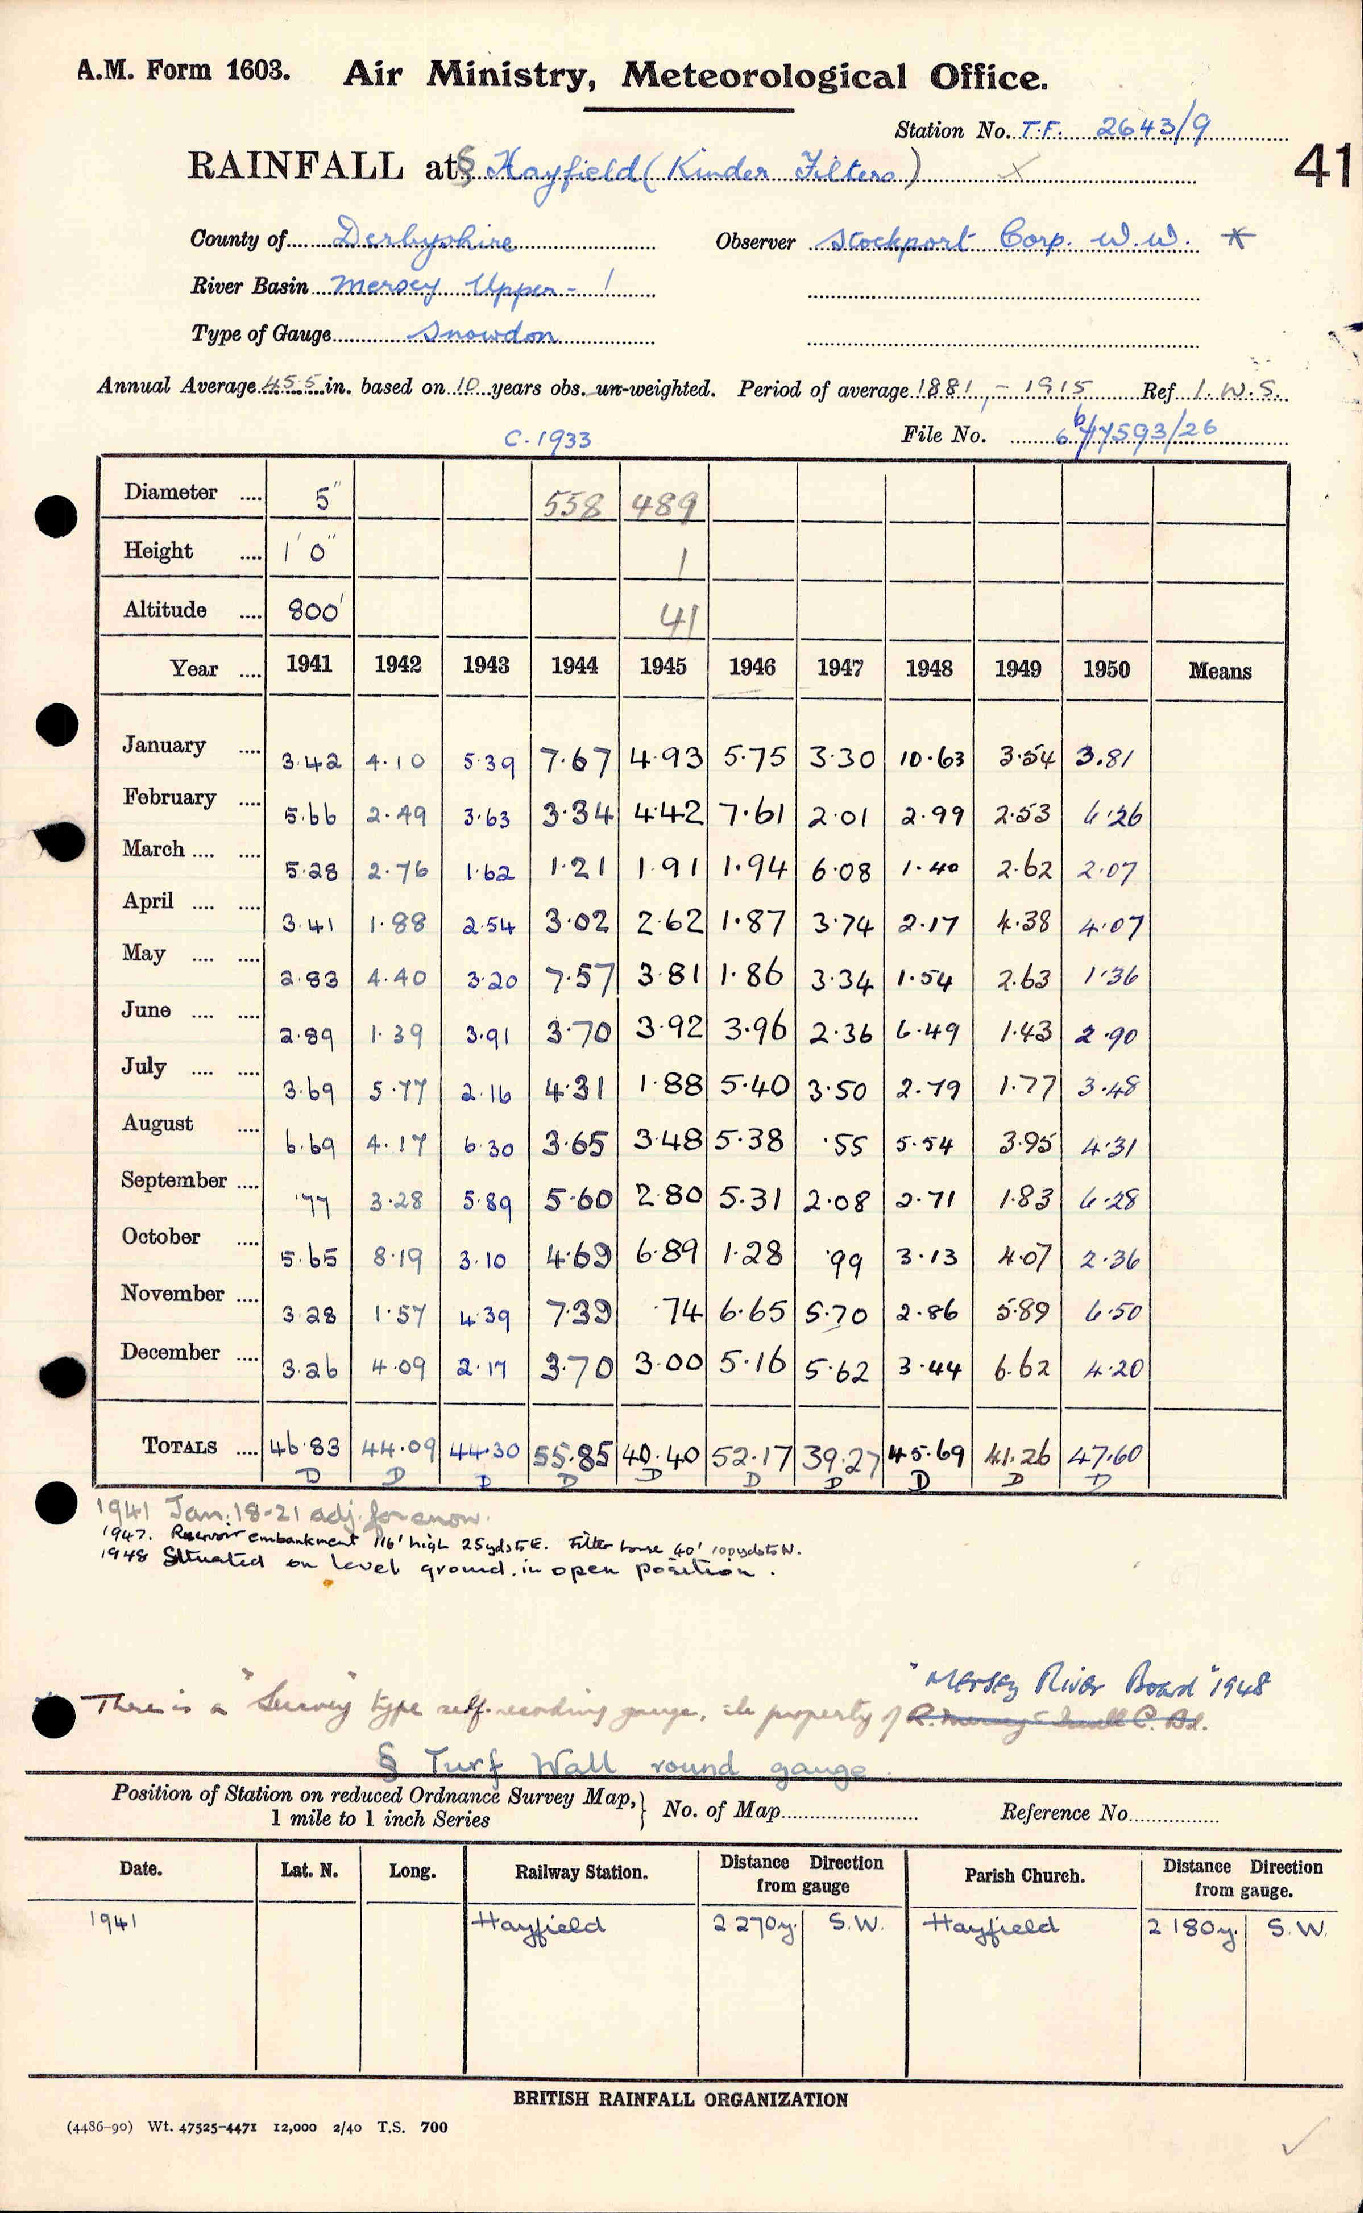 A.M. Form 1603. Air Ministry, Meteorological Office.
Station No. T.F. 2643/9
41
RAINFALL at § Hayfield (Kinder Filters) X
County of Derbyshire Observer Stockport Corp. W.W. *
River Basin Mersey Upper - 1
Type of Gauge Snowdon
Annual Average 45.5 in. based on 10 years obs. un-weighted. Period of average 1881 - 1915 Ref I.W.S.
C. 1933 File No.
Diameter .... 5" 558 489
Height .... 1' 0" 1
Altitude .... 800' 41
Year .... 1941 1942 1943 1944 1945 1946 1947 1948 1949 1950 Means
January .... 3.42 4.10 5.39 7.67 4.93 5.75 3.30 10.63 3.54 3.81
February .... 5.66 2.49 3.63 3.34 4.42 7.61 2.01 2.99 2.53 6.26
March .... .... 5.28 2.76 1.62 1.21 1.91 1.94 6.08 1.40 2.62 2.07
April .... .... 3.41 1.88 2.54 3.02 2.62 1.87 3.74 2.17 4.38 4.07
May .... .... 2.83 4.40 3.20 7.57 3.81 1.86 3.34 1.54 2.63 1.36
June .... .... 2.89 1.39 3.91 3.70 3.92 3.96 2.36 6.49 1.43 2.90
July .... .... 3.69 5.77 2.16 4.31 1.88 5.40 3.50 2.79 1.77 3.48
August .... 6.69 4.17 6.30 3.65 3.48 5.38 .55 5.54 3.95 4.31
September .... .77 3.28 5.89 5.60 2.80 5.31 2.08 2.71 1.83 6.28
October .... 5.65 8.19 3.10 4.69 6.89 1.28 .99 3.13 4.07 2.36
November .... 3.28 1.57 4.39 7.39 .74 6.65 5.70 2.86 5.89 6.50
December .... 3.26 4.09 2.17 3.70 3.00 5.16 5.62 3.44 6.62 4.20
TOTALS .... 46.83 44.09 44.30 55.85 40.40 52.17 39.27 45.69 41.26 47.60
D D D D D D D D D D
1941 Jan. 18-21 adj. for snow.
1947. Reservoir embankment 116' high 25yds to E. Filter house 40' 100yds to N.
1948 Situated on level ground, in open position.
"Mersey River Board" 1948
There is a "Survey" type self-recording gauge, the property of
§ Turf Wall round gauge.
Position of Station on reduced Ordnance Survey Map, } No. of Map Reference No.
1 mile to 1 inch Series
Date. Lat. N. Long. Railway Station. Distance Direction from gauge Parish Church. Distance Direction from gauge.
1941 Hayfield 2270y. S.W. Hayfield 2180y. S.W.
BRITISH RAINFALL ORGANIZATION
(4486-90) Wt. 47525-4471 12,000 2/40 T.S. 700